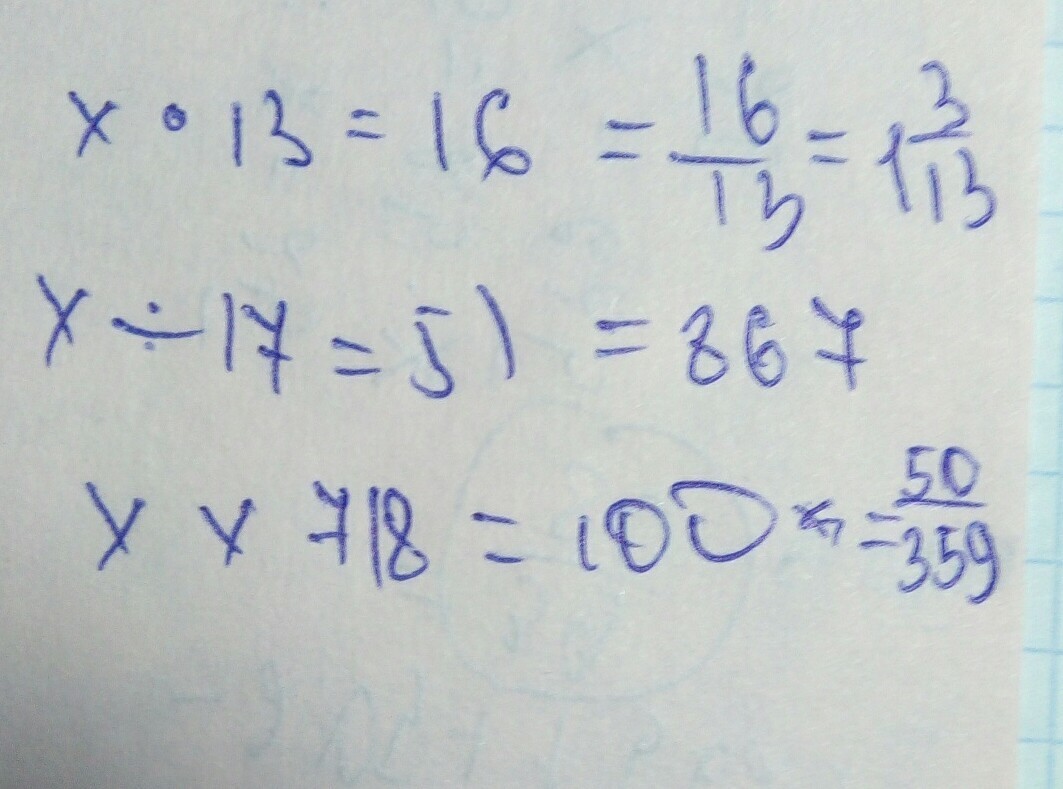 x • 13 = 16 = 16/13 = 1 3/13
x ÷ 17 = 51 = 867
x x 718 = 100 = 50/359